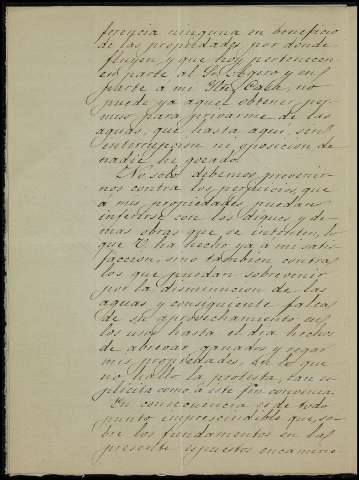 ferencia ninguna en beneficio
de las propiedades por donde
fluyen, y que hoy pertenecen
en parte al Sr. Agero y en
parte a mi Sra. no
puede ya aquel obtener per-
miso para privarme de las
aguas, que hasta aqui, sin
interrupcion ni oposicion de
nadie he gozado.
No solo debemos preveni-
nos contra los perjuicios que
a mis propiedades puedan
inferirse con los diques y de-
mas obras que se intenten, lo
que V. ha hecho ya á mi satis-
faccion, sino tambien contra
los que puedan sobrevenir
por la disminucion de las
aguas y consiguiente falta
de su aprovechamiento en
los usos hasta el dia hechos
de abrevar ganados y regar
mis propiedades, en lo que
no hallo la protesta, tan es-
plicita como á este fin convenia.
En consecuencia es de todo
punto imprescindible que, so-
bre los fundamentos en las
presente espuestos encamine